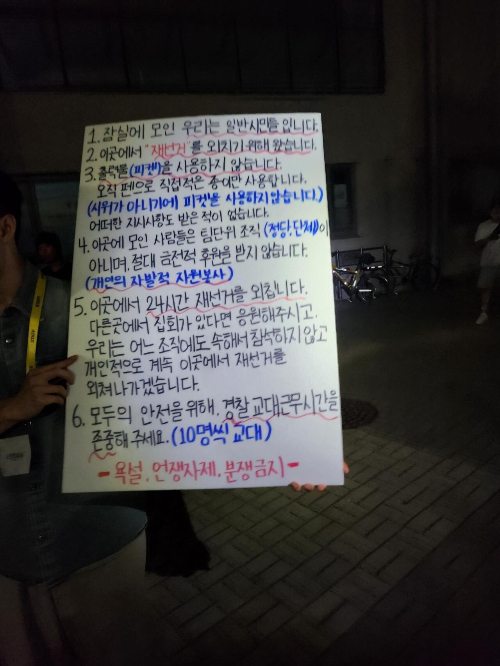 1. 잠실에 모인 우리는 일반시민들 입니다.
2. 이곳에서 "재선거"를 외치기 위해 왔습니다.
3. 출력물(피켓)을 사용하지 않습니다.
오직 펜으로 직접적은 종이만 사용합니다.
(시위가 아니기에 피켓을 사용하지않습니다.)
어떠한 지시사항도 받은 적이 없습니다.
4. 이곳에 모인 사람들은 팀단위 조직(정당,단체)이
아니며, 절대 금전적 후원을 받지 않습니다.
(개인의 자발적 자원봉사)
5. 이곳에서 24시간 재선거를 외칩니다.
다른곳에서 집회가 있다면 응원해주시고.
우리는 어느 조직에도 속해서 참석하지 않고
개인적으로 계속 이곳에서 재선거를
외쳐나가겠습니다.
6. 모두의 안전을 위해, 경찰 교대근무시간을
존중해 주세요. (10명씩 교대)
- 욕설, 언쟁자제, 분쟁금지 -